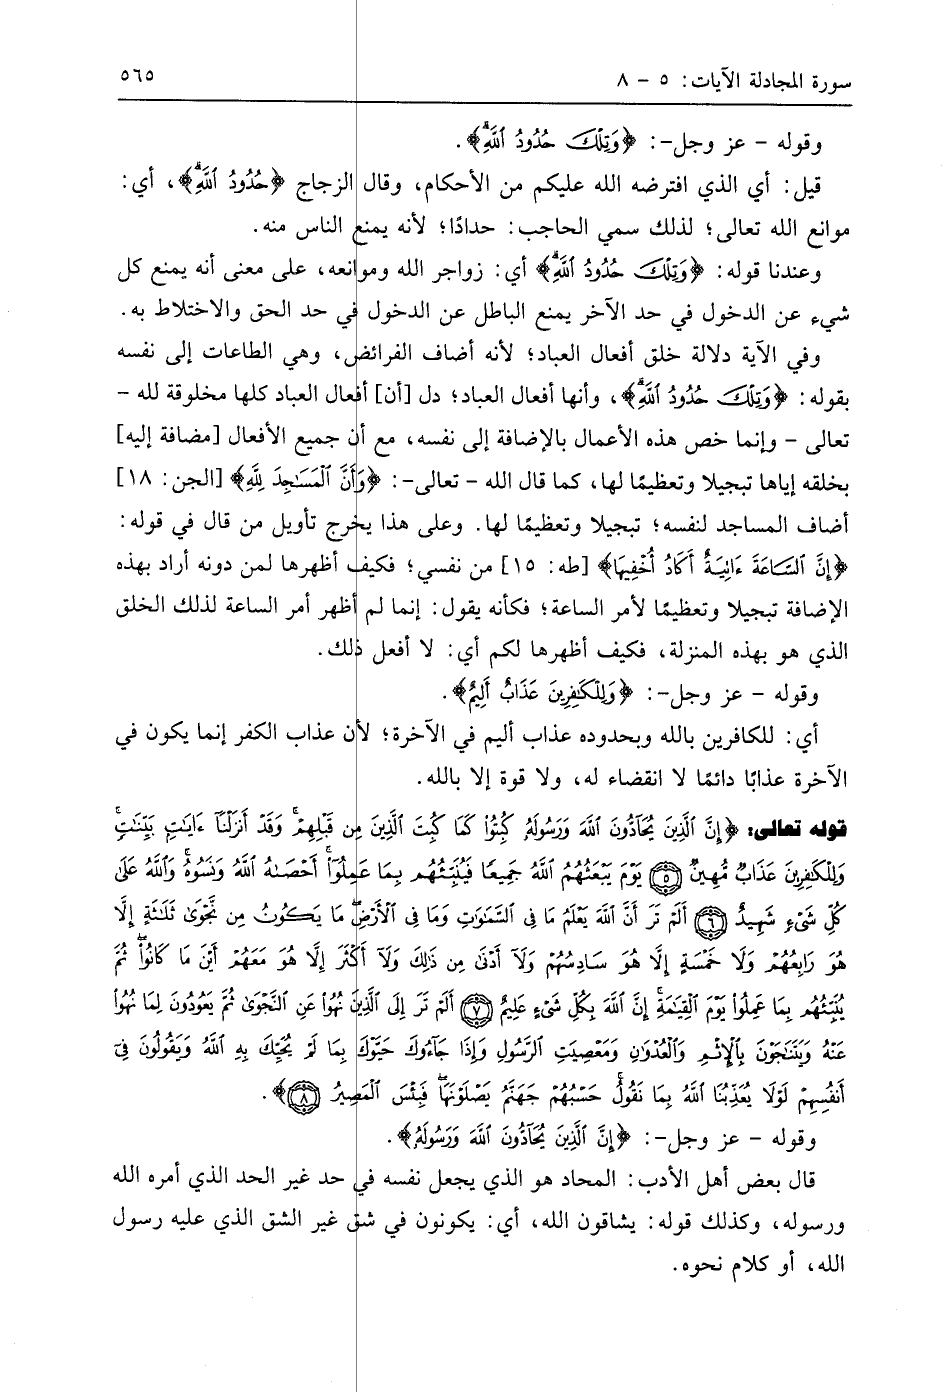 سورة المجادلة الآيات: ٥ - ٨ ٥٦٥
وقوله - عز وجل-: ﴿وَتِلْكَ حُدُودُ ٱللَّهِۗ﴾.
قيل: أي الذي افترضه الله عليكم من الأحكام، وقال الزجاج ﴿حُدُودُ ٱللَّهِۗ﴾، أي:
موانع الله تعالى؛ لذلك سمي الحاجب: حدادًا؛ لأنه يمنع الناس منه.
وعندنا قوله: ﴿وَتِلْكَ حُدُودُ ٱللَّهِۗ﴾ أي: زواجر الله وموانعه، على معنى أنه يمنع كل
شيء عن الدخول في حد الآخر يمنع الباطل عن الدخول في حد الحق والاختلاط به.
وفي الآية دلالة خلق أفعال العباد؛ لأنه أضاف الفرائض، وهي الطاعات إلى نفسه
بقوله: ﴿وَتِلْكَ حُدُودُ ٱللَّهِۗ﴾، وأنها أفعال العباد؛ دل [أن] أفعال العباد كلها مخلوقة لله -
تعالى - وإنما خص هذه الأعمال بالإضافة إلى نفسه، مع أن جميع الأفعال [مضافة إليه]
بخلقه إياها تبجيلا وتعظيمًا لها، كما قال الله - تعالى-: ﴿وَأَنَّ ٱلْمَسَٰجِدَ لِلَّهِ﴾ [الجن: ١٨]
أضاف المساجد لنفسه؛ تبجيلا وتعظيمًا لها. وعلى هذا يخرج تأويل من قال في قوله:
﴿إِنَّ ٱلسَّاعَةَ ءَاتِيَةٌ أَكَادُ أُخْفِيهَا﴾ [طه: ١٥] من نفسي؛ فكيف أظهرها لمن دونه أراد بهذه
الإضافة تبجيلا وتعظيمًا لأمر الساعة؛ فكأنه يقول: إنما لم أظهر أمر الساعة لذلك الخلق
الذي هو بهذه المنزلة، فكيف أظهرها لكم أي: لا أفعل ذلك.
وقوله - عز وجل-: ﴿وَلِلْكَٰفِرِينَ عَذَابٌ أَلِيمٌ﴾.
أي: للكافرين بالله وبحدوده عذاب أليم في الآخرة؛ لأن عذاب الكفر إنما يكون في
الآخرة عذابًا دائمًا لا انقضاء له، ولا قوة إلا بالله.
قوله تعالى: ﴿إِنَّ ٱلَّذِينَ يُحَآدُّونَ ٱللَّهَ وَرَسُولَهُۥ كُبِتُوا۟ كَمَا كُبِتَ ٱلَّذِينَ مِن قَبْلِهِمْۚ وَقَدْ أَنزَلْنَآ ءَايَٰتٍۭ بَيِّنَٰتٍۚ
وَلِلْكَٰفِرِينَ عَذَابٌ مُّهِينٌ ٥ يَوْمَ يَبْعَثُهُمُ ٱللَّهُ جَمِيعًا فَيُنَبِّئُهُم بِمَا عَمِلُوٓا۟ۚ أَحْصَىٰهُ ٱللَّهُ وَنَسُوهُۚ وَٱللَّهُ عَلَىٰ
كُلِّ شَىْءٍ شَهِيدٌ ٦ أَلَمْ تَرَ أَنَّ ٱللَّهَ يَعْلَمُ مَا فِى ٱلسَّمَٰوَٰتِ وَمَا فِى ٱلْأَرْضِۖ مَا يَكُونُ مِن نَّجْوَىٰ ثَلَٰثَةٍ إِلَّا
هُوَ رَابِعُهُمْ وَلَا خَمْسَةٍ إِلَّا هُوَ سَادِسُهُمْ وَلَآ أَدْنَىٰ مِن ذَٰلِكَ وَلَآ أَكْثَرَ إِلَّا هُوَ مَعَهُمْ أَيْنَ مَا كَانُوا۟ۖ ثُمَّ
يُنَبِّئُهُم بِمَا عَمِلُوا۟ يَوْمَ ٱلْقِيَٰمَةِۚ إِنَّ ٱللَّهَ بِكُلِّ شَىْءٍ عَلِيمٌ ٧ أَلَمْ تَرَ إِلَى ٱلَّذِينَ نُهُوا۟ عَنِ ٱلنَّجْوَىٰ ثُمَّ يَعُودُونَ لِمَا نُهُوا۟
عَنْهُ وَيَتَنَٰجَوْنَ بِٱلْإِثْمِ وَٱلْعُدْوَٰنِ وَمَعْصِيَتِ ٱلرَّسُولِ وَإِذَا جَآءُوكَ حَيَّوْكَ بِمَا لَمْ يُحَيِّكَ بِهِ ٱللَّهُ وَيَقُولُونَ فِىٓ
أَنفُسِهِمْ لَوْلَا يُعَذِّبُنَا ٱللَّهُ بِمَا نَقُولُۚ حَسْبُهُمْ جَهَنَّمُ يَصْلَوْنَهَاۖ فَبِئْسَ ٱلْمَصِيرُ ٨﴾.
وقوله - عز وجل-: ﴿إِنَّ ٱلَّذِينَ يُحَآدُّونَ ٱللَّهَ وَرَسُولَهُۥ﴾.
قال بعض أهل الأدب: المحاد هو الذي يجعل نفسه في حد غير الحد الذي أمره الله
ورسوله، وكذلك قوله: يشاقون الله، أي: يكونون في شق غير الشق الذي عليه رسول
الله، أو كلام نحوه.